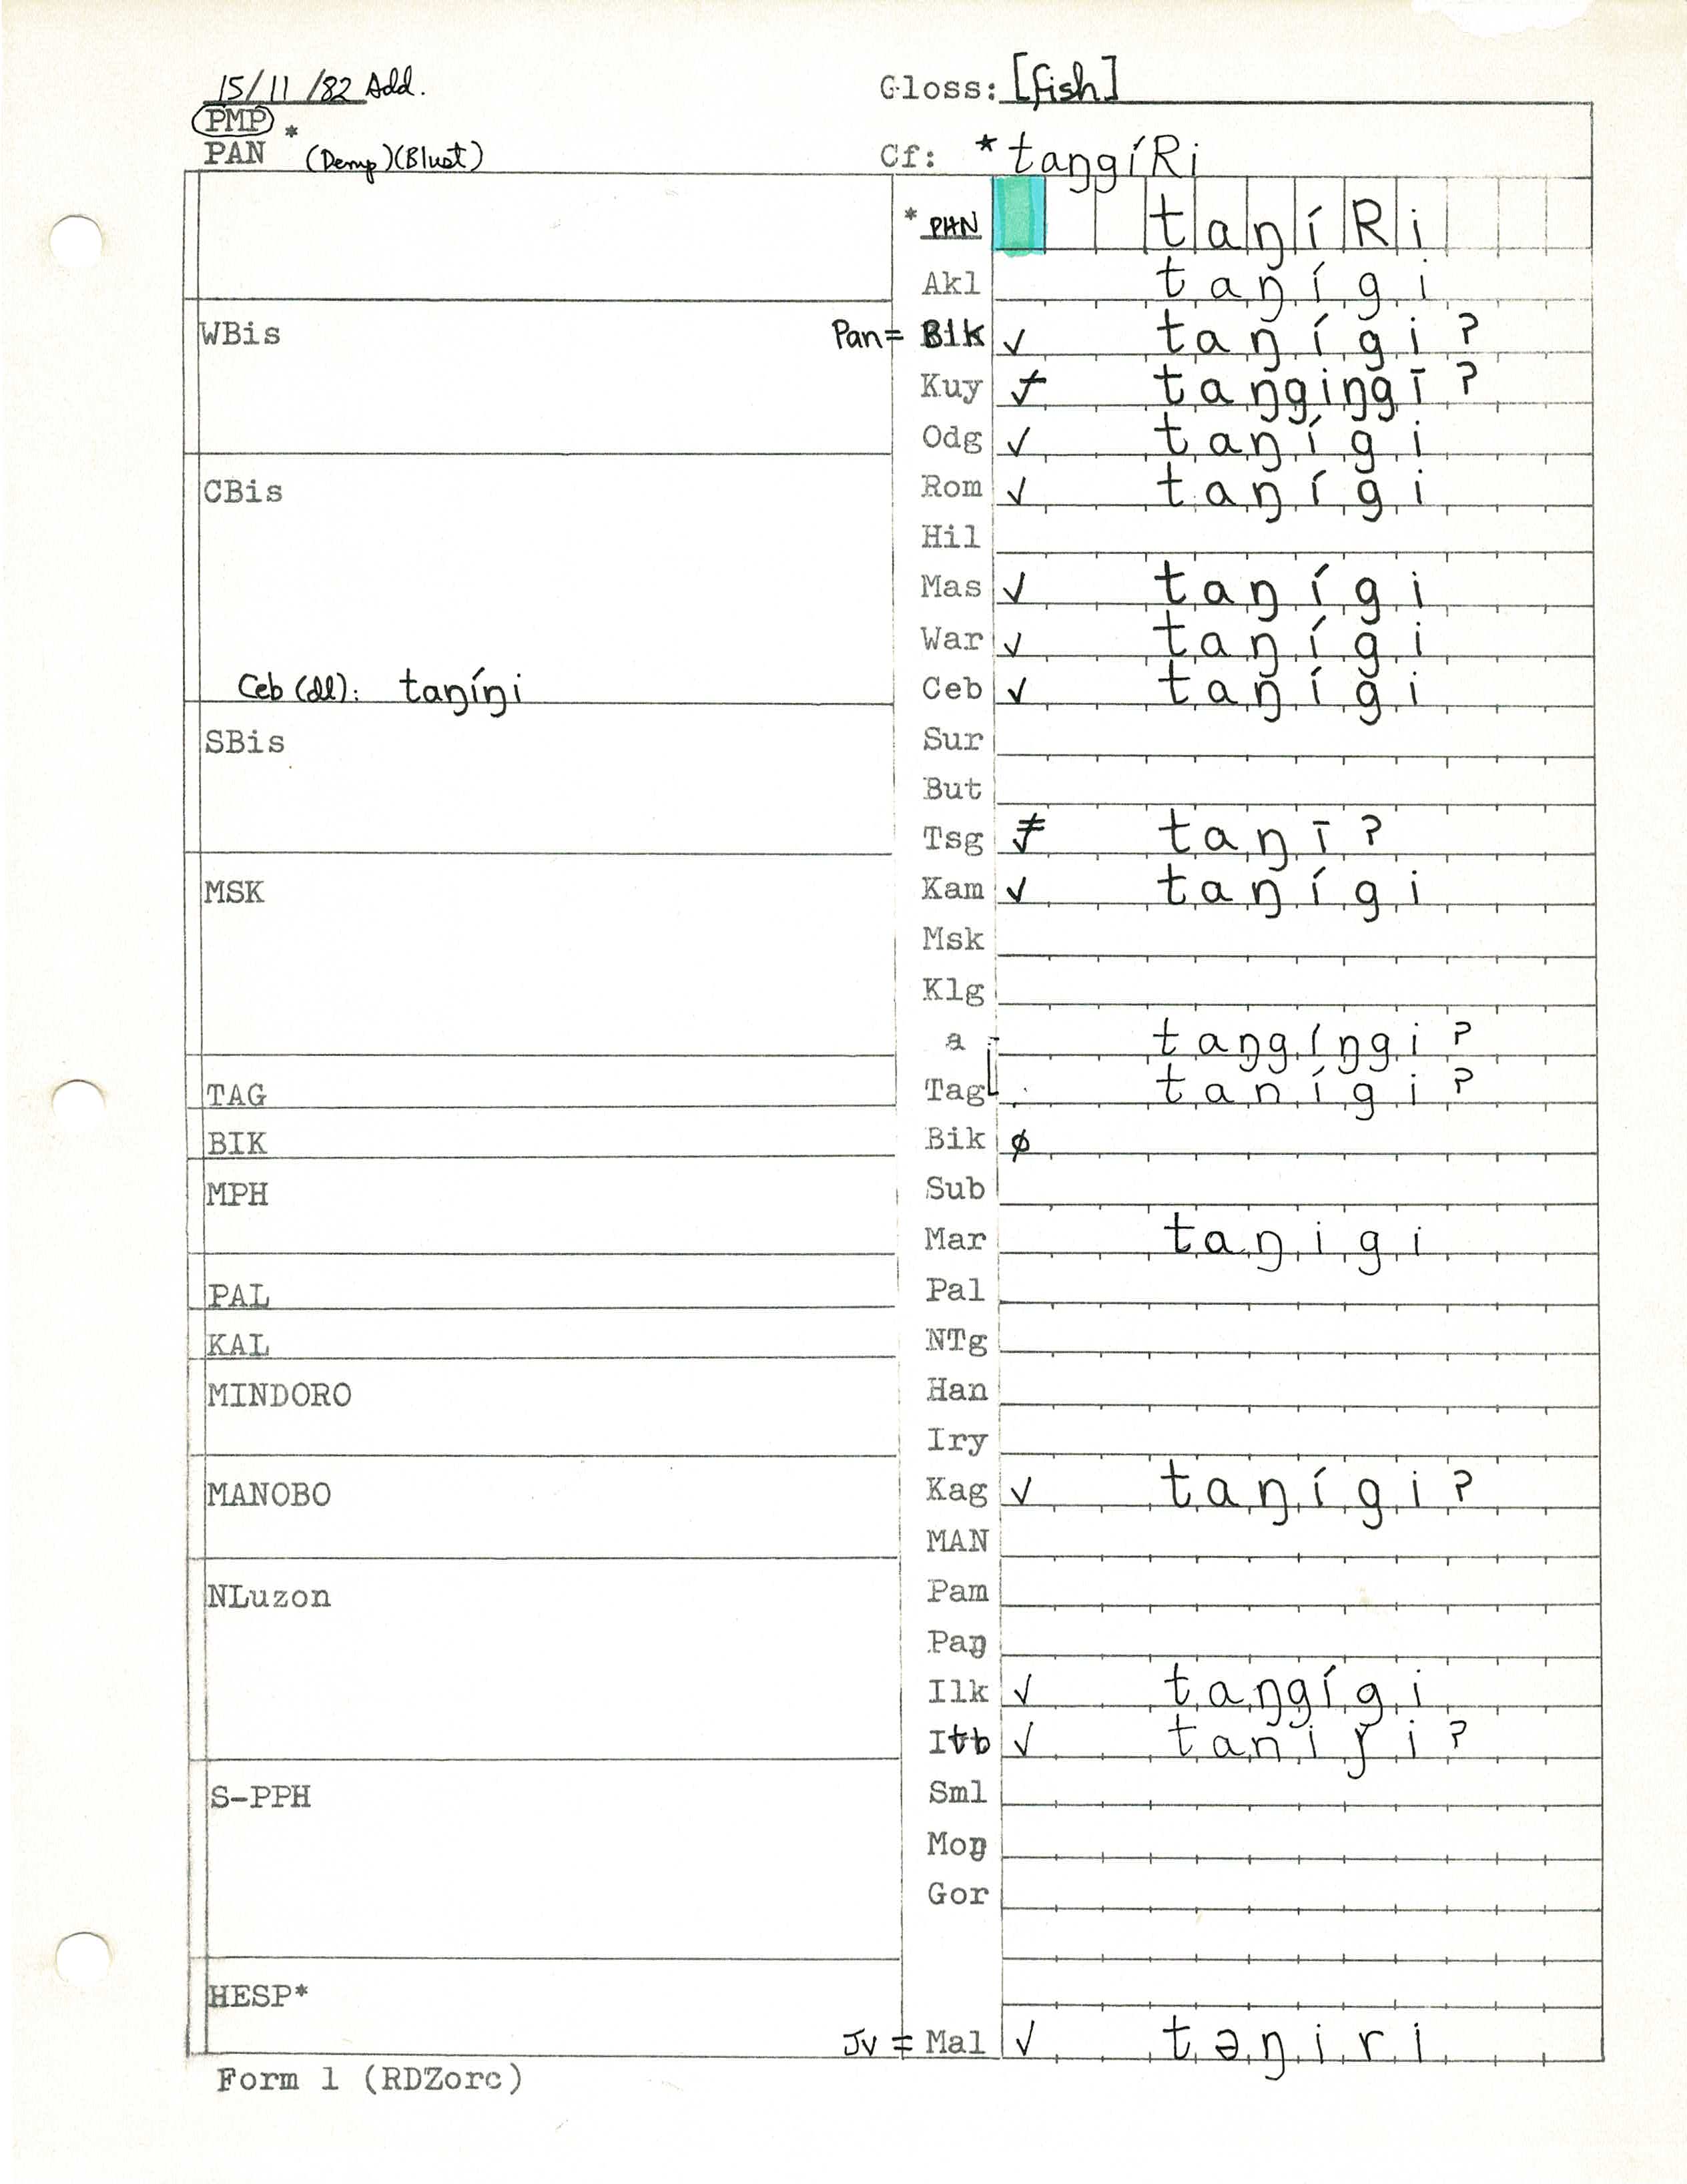 15/11/82 Add.
Gloss: [fish]
PMP
PAN * (Demp)(Blust)
Cf: *taŋgíRi
* PHN taŋíRi
Akl taŋígi
WBis
Pan= Blk ✓ taŋígi?
Kuy taŋgiŋgī?
Odg ✓ taŋígi
CBis
Rom ✓ taŋígi
Hil
Mas ✓ taŋígi
War ✓ taŋígi
Ceb (dl): taŋíŋi
Ceb ✓ taŋígi
SBis
Sur
But
Tsg taŋī?
MSK
Kam ✓ taŋígi
Msk
Klg
a taŋgíŋgi?
TAG
Tag tanígi?
BIK
Bik ∅
MPH
Sub
Mar taŋigi
PAL
Pal
KAL
NTg
MINDORO
Han
Iry
MANOBO
Kag ✓ taŋígi?
MAN
NLuzon
Pam
Paŋ
Ilk ✓ taŋgígi
Itb ✓ taniɼi?
S-PPH
Sml
Moŋ
Gor
HESP*
Jv = Mal ✓ təŋiri
Form 1 (RDZorc)